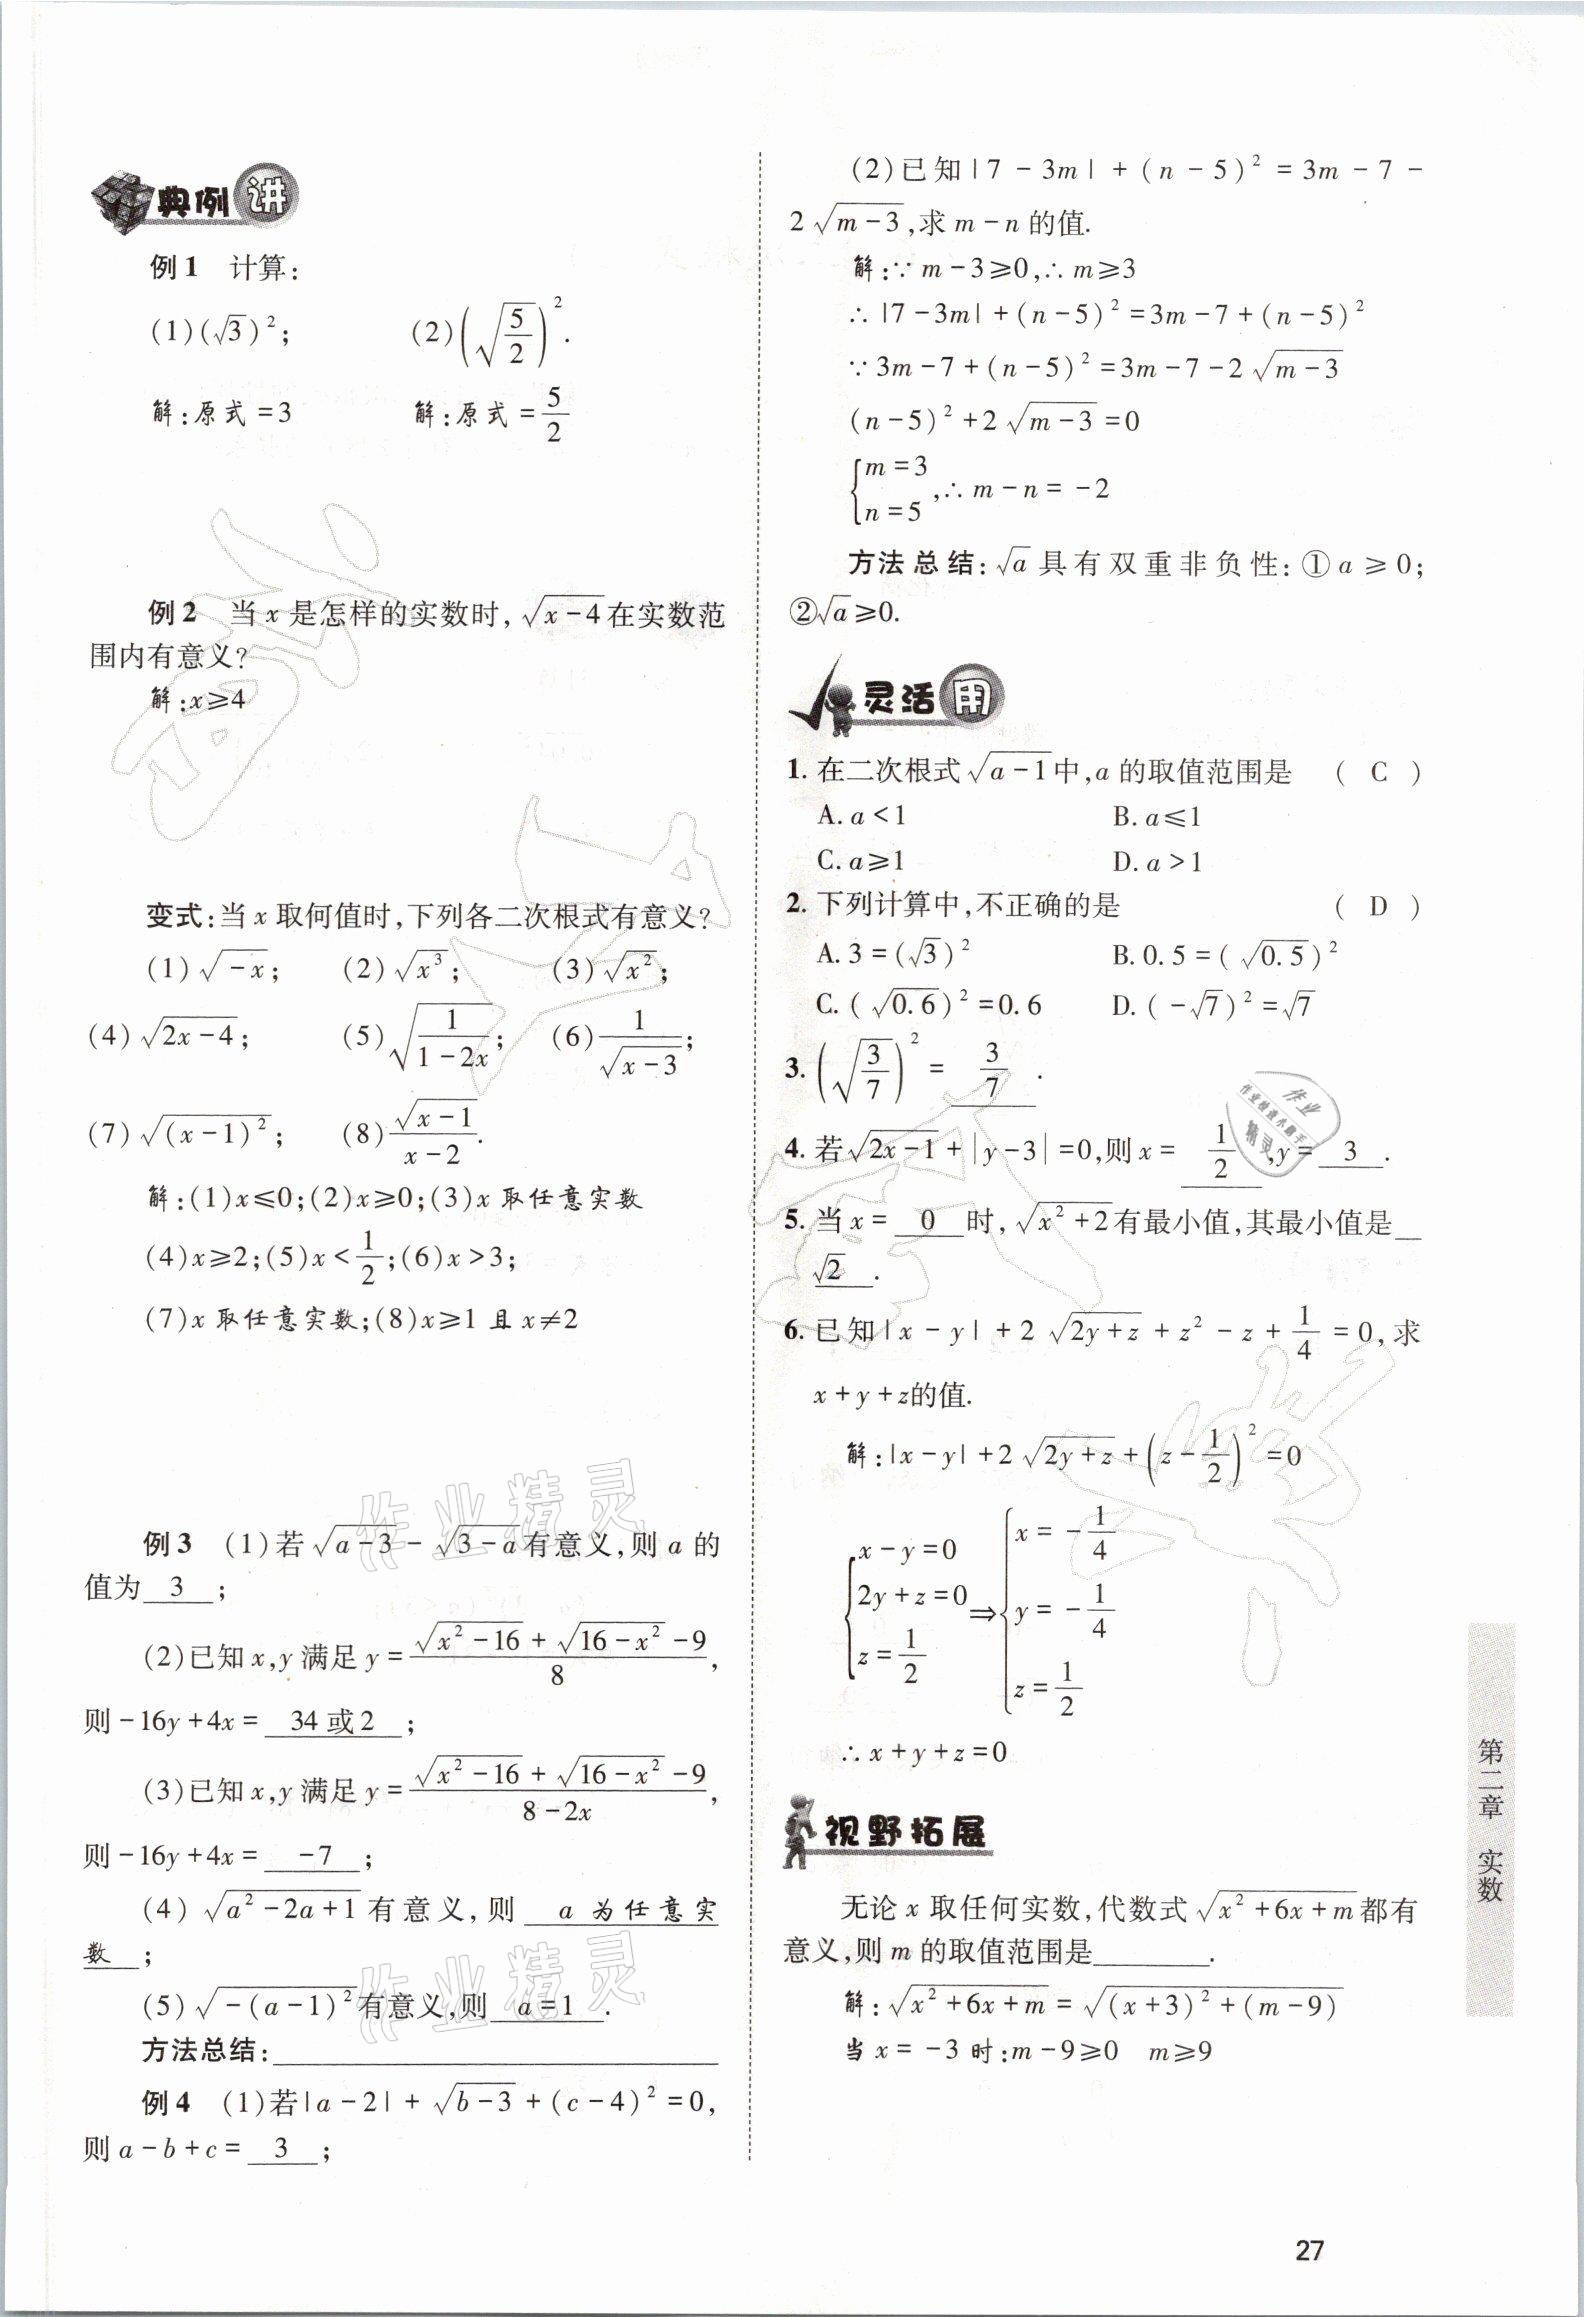 典例讲
例1 计算:
(1)(√3)²; (2)(√(5/2))².
解:原式=3 解:原式=5/2
例2 当x是怎样的实数时,√(x-4)在实数范
围内有意义?
解:x≥4
变式:当x取何值时,下列各二次根式有意义?
(1)√(-x); (2)√(x³); (3)√(x²);
(4)√(2x-4); (5)√(1/(1-2x)); (6)1/√(x-3);
(7)√((x-1)²); (8)√(x-1)/(x-2).
解:(1)x≤0;(2)x≥0;(3)x取任意实数
(4)x≥2;(5)x<1/2;(6)x>3;
(7)x取任意实数;(8)x≥1且x≠2
例3 (1)若√(a-3)-√(3-a)有意义,则a的
值为 3 ;
(2)已知x,y满足y=(√(x²-16)+√(16-x²)-9)/8,
则-16y+4x= 34或2 ;
(3)已知x,y满足y=(√(x²-16)+√(16-x²)-9)/(8-2x),
则-16y+4x= -7 ;
(4)√(a²-2a+1)有意义,则 a为任意实
数 ;
(5)√(-(a-1)²)有意义,则 a=1 .
方法总结:
例4 (1)若|a-2|+√(b-3)+(c-4)²=0,
则a-b+c= 3 ;
(2)已知|7-3m|+(n-5)²=3m-7-
2√(m-3),求m-n的值.
解:∵m-3≥0,∴m≥3
∴|7-3m|+(n-5)²=3m-7+(n-5)²
∵3m-7+(n-5)²=3m-7-2√(m-3)
(n-5)²+2√(m-3)=0
{m=3
n=5,∴m-n=-2
方法总结:√a具有双重非负性:①a≥0;
②√a≥0.
灵活用
1.在二次根式√(a-1)中,a的取值范围是 ( C )
A.a<1 B.a≤1
C.a≥1 D.a>1
2.下列计算中,不正确的是 ( D )
A.3=(√3)² B.0.5=(√0.5)²
C.(√0.6)²=0.6 D.(-√7)²=√7
3.(√(3/7))²= 3/7 .
4.若√(2x-1)+|y-3|=0,则x= 1/2 ,y= 3 .
5.当x= 0 时,√(x²+2)有最小值,其最小值是
√2 .
6.已知|x-y|+2√(2y+z)+z²-z+1/4=0,求
x+y+z的值.
解:|x-y|+2√(2y+z)+(z-1/2)²=0
{x-y=0
2y+z=0
z=1/2
⇒{x=-1/4
y=-1/4
z=1/2
∴x+y+z=0
视野拓展
无论x取任何实数,代数式√(x²+6x+m)都有
意义,则m的取值范围是 .
解:√(x²+6x+m)=√((x+3)²+(m-9))
当x=-3时:m-9≥0 m≥9
第二章 实数
27
作业精灵
作业精灵
作业
作业检查小助手
精灵